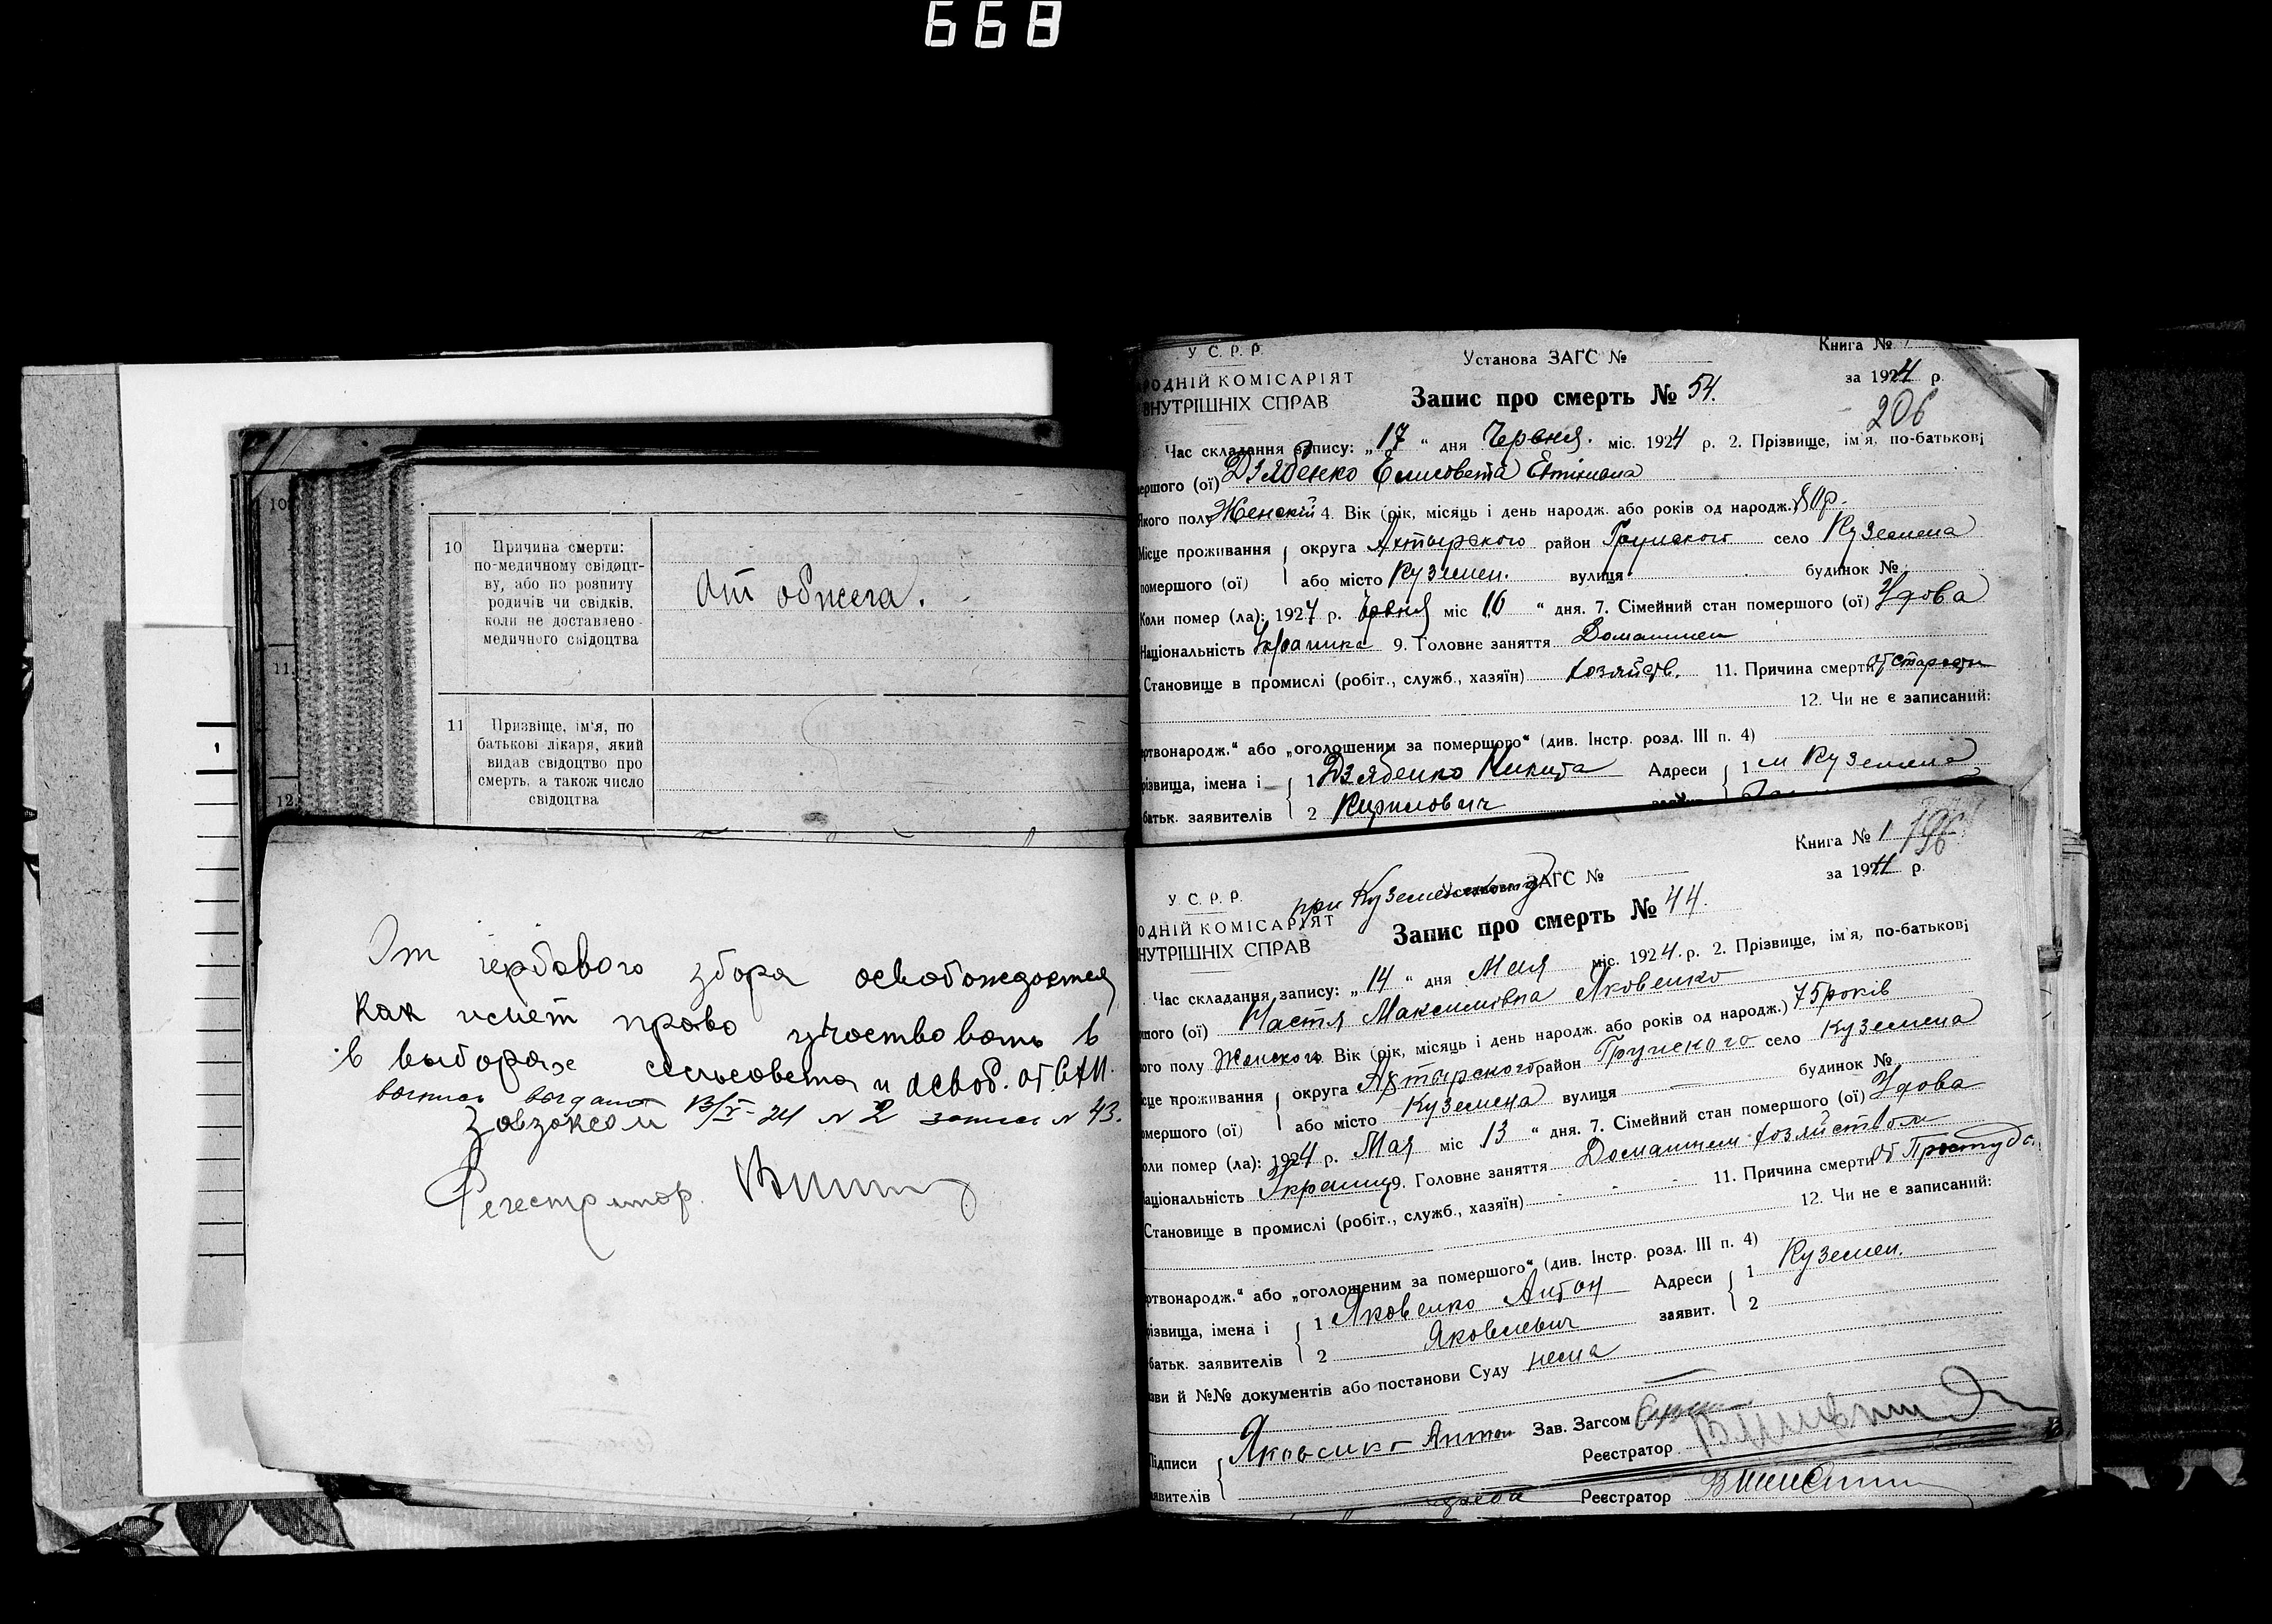 668
10
11.
12
10 Причина смерти:
по-медичному свідоцт-
ву, або по розпиту
родичів чи свідків,
коли не доставлено
медичного свідоцтва
От обжега.
11 Призвіще, ім'я, по
батькові лікаря, який
видав свідоцтво про
смерть, а також число
свідоцтва
От гербового збора освобождается
как имет право участвовать в
в выборах сельсовета и освоб. от
13/V-24 № 2 запись № 43.
Регестратор.
У С. Р. Р. Установа ЗАГС № Книга №
РОДНІЙ КОМІСАРІЯТ за 1924 р.
ВНУТРІШНІХ СПРАВ Запис про смерть № 54.
206
Час складання запису: „17" дня Червня. міс. 1924 р. 2. Прізвище, ім'я, по-батькові
ершого (ої) Дзябенко Елисовета
якого полу Женский 4. Вік (рік, місяць і день народж. або років од народж.) 80р.
Місце проживання округа Ахтырского район Грунского село Куземена
помершого (ої) або місто Куземен. вулиця будинок №
Коли помер (ла): 1924 р. Червня міс 16 " дня. 7. Сімейний стан помершого (ої) Удова
Національність 9. Головне заняття Домашнем
Становище в промислі (робіт., служб., хазяїн) хозяйств. 11. Причина смерти От старости
12. Чи не є записаний:
ртвонародж." або „оголошеним за померщого" (див. Інстр. розд. III п. 4)
різвища, імена і 1 Дзябенко Никита Адреси 1 м Куземена
батьк. заявителів 2 Кирилович
Книга № 1 196
У С. Р. Р. при Установа ЗАГС № за 1924 р.
ОДНІЙ КОМІСАРІЯТ
НУТРІШНІХ СПРАВ Запис про смерть № 44.
Час складання запису: „14" дня Мая міс. 1924 р. 2. Прізвище, ім'я, по-батькові
шого (ої) Настя Максимовна Яковенко
ого полу Женского. Вік (рік, місяць і день народж. або років од народж.) 75 років
сце проживання округа Ахтырского район Грунского село Куземена
омершого (ої) або місто Куземена вулиця будинок №
оли помер (ла): 1924 р. Мая міс 13 " дня. 7. Сімейний стан помершого (ої) Удова
аціональність 9. Головне заняття Домашнем хозяйством
Становище в промислі (робіт., служб., хазяїн) 11. Причина смерти От Простуды
12. Чи не є записаний:
ртвонародж." або „оголошеним за помершого" (див. Інстр. розд. III п. 4)
різвища, імена і 1 Яковенко Антон Адреси 1 Куземен.
батьк. заявителів 2 Яковлевич заявит. 2
зви й №№ документів або постанови Суду нема
Підписи Яковенко Антон Зав. Загсом
аявителів Реєстратор
Реєстратор